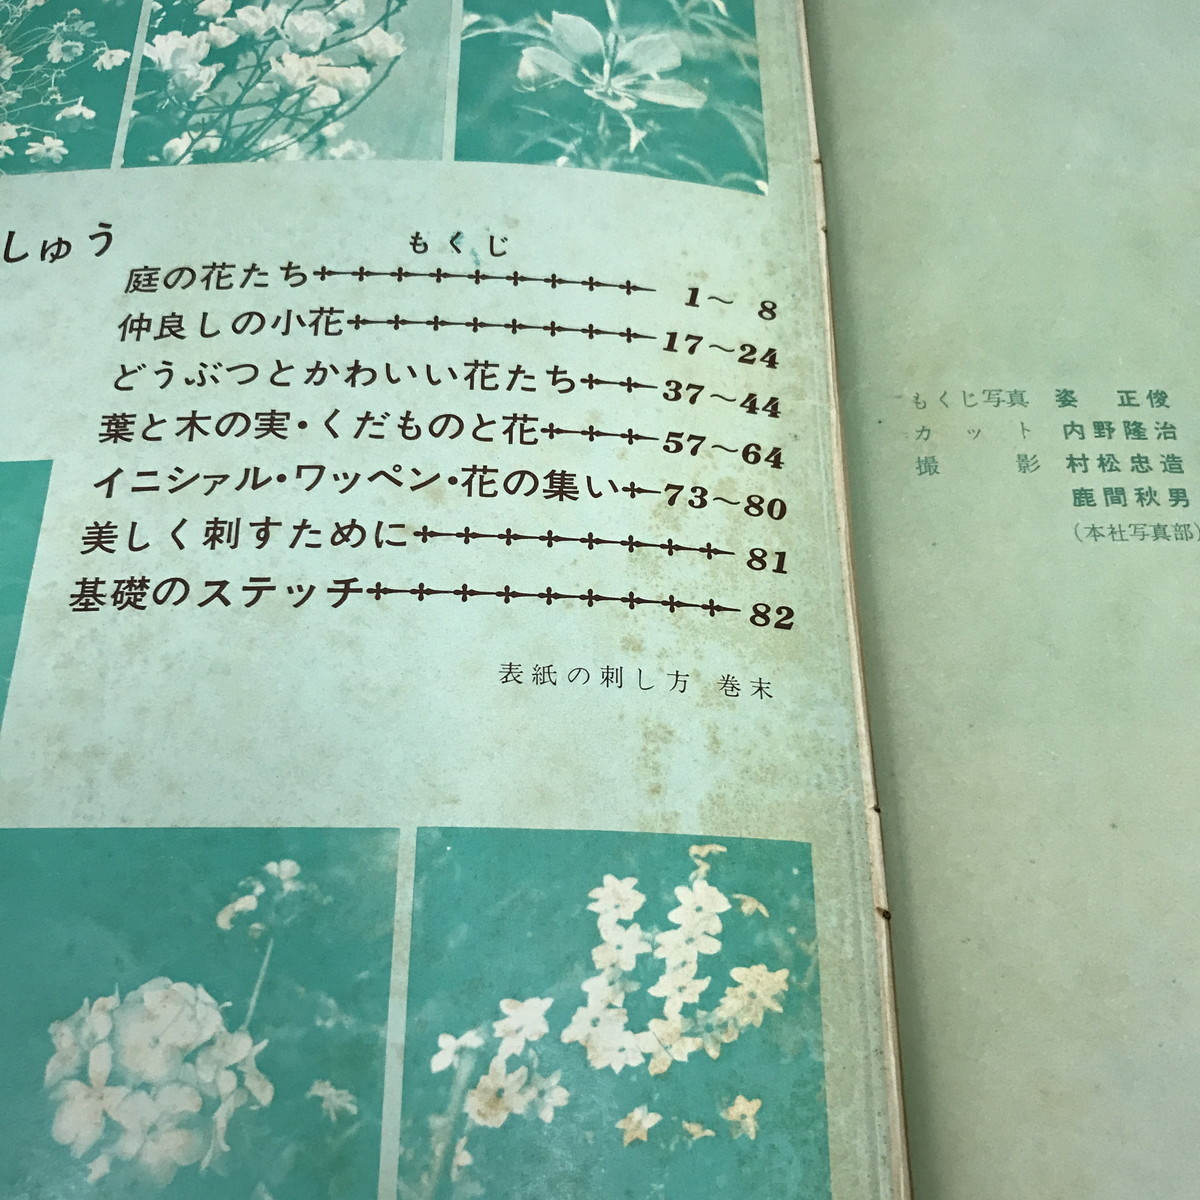 しゅう
もくじ
庭の花たち 1〜8
仲良しの小花 17〜24
どうぶつとかわいい花たち 37〜44
葉と木の実・くだものと花 57〜64
イニシァル・ワッペン・花の集い 73〜80
美しく刺すために 81
基礎のステッチ 82
表紙の刺し方 巻末
もくじ写真 姿 正俊
カット 内野隆治
撮影 村松忠造
鹿間秋男
(本社写真部)